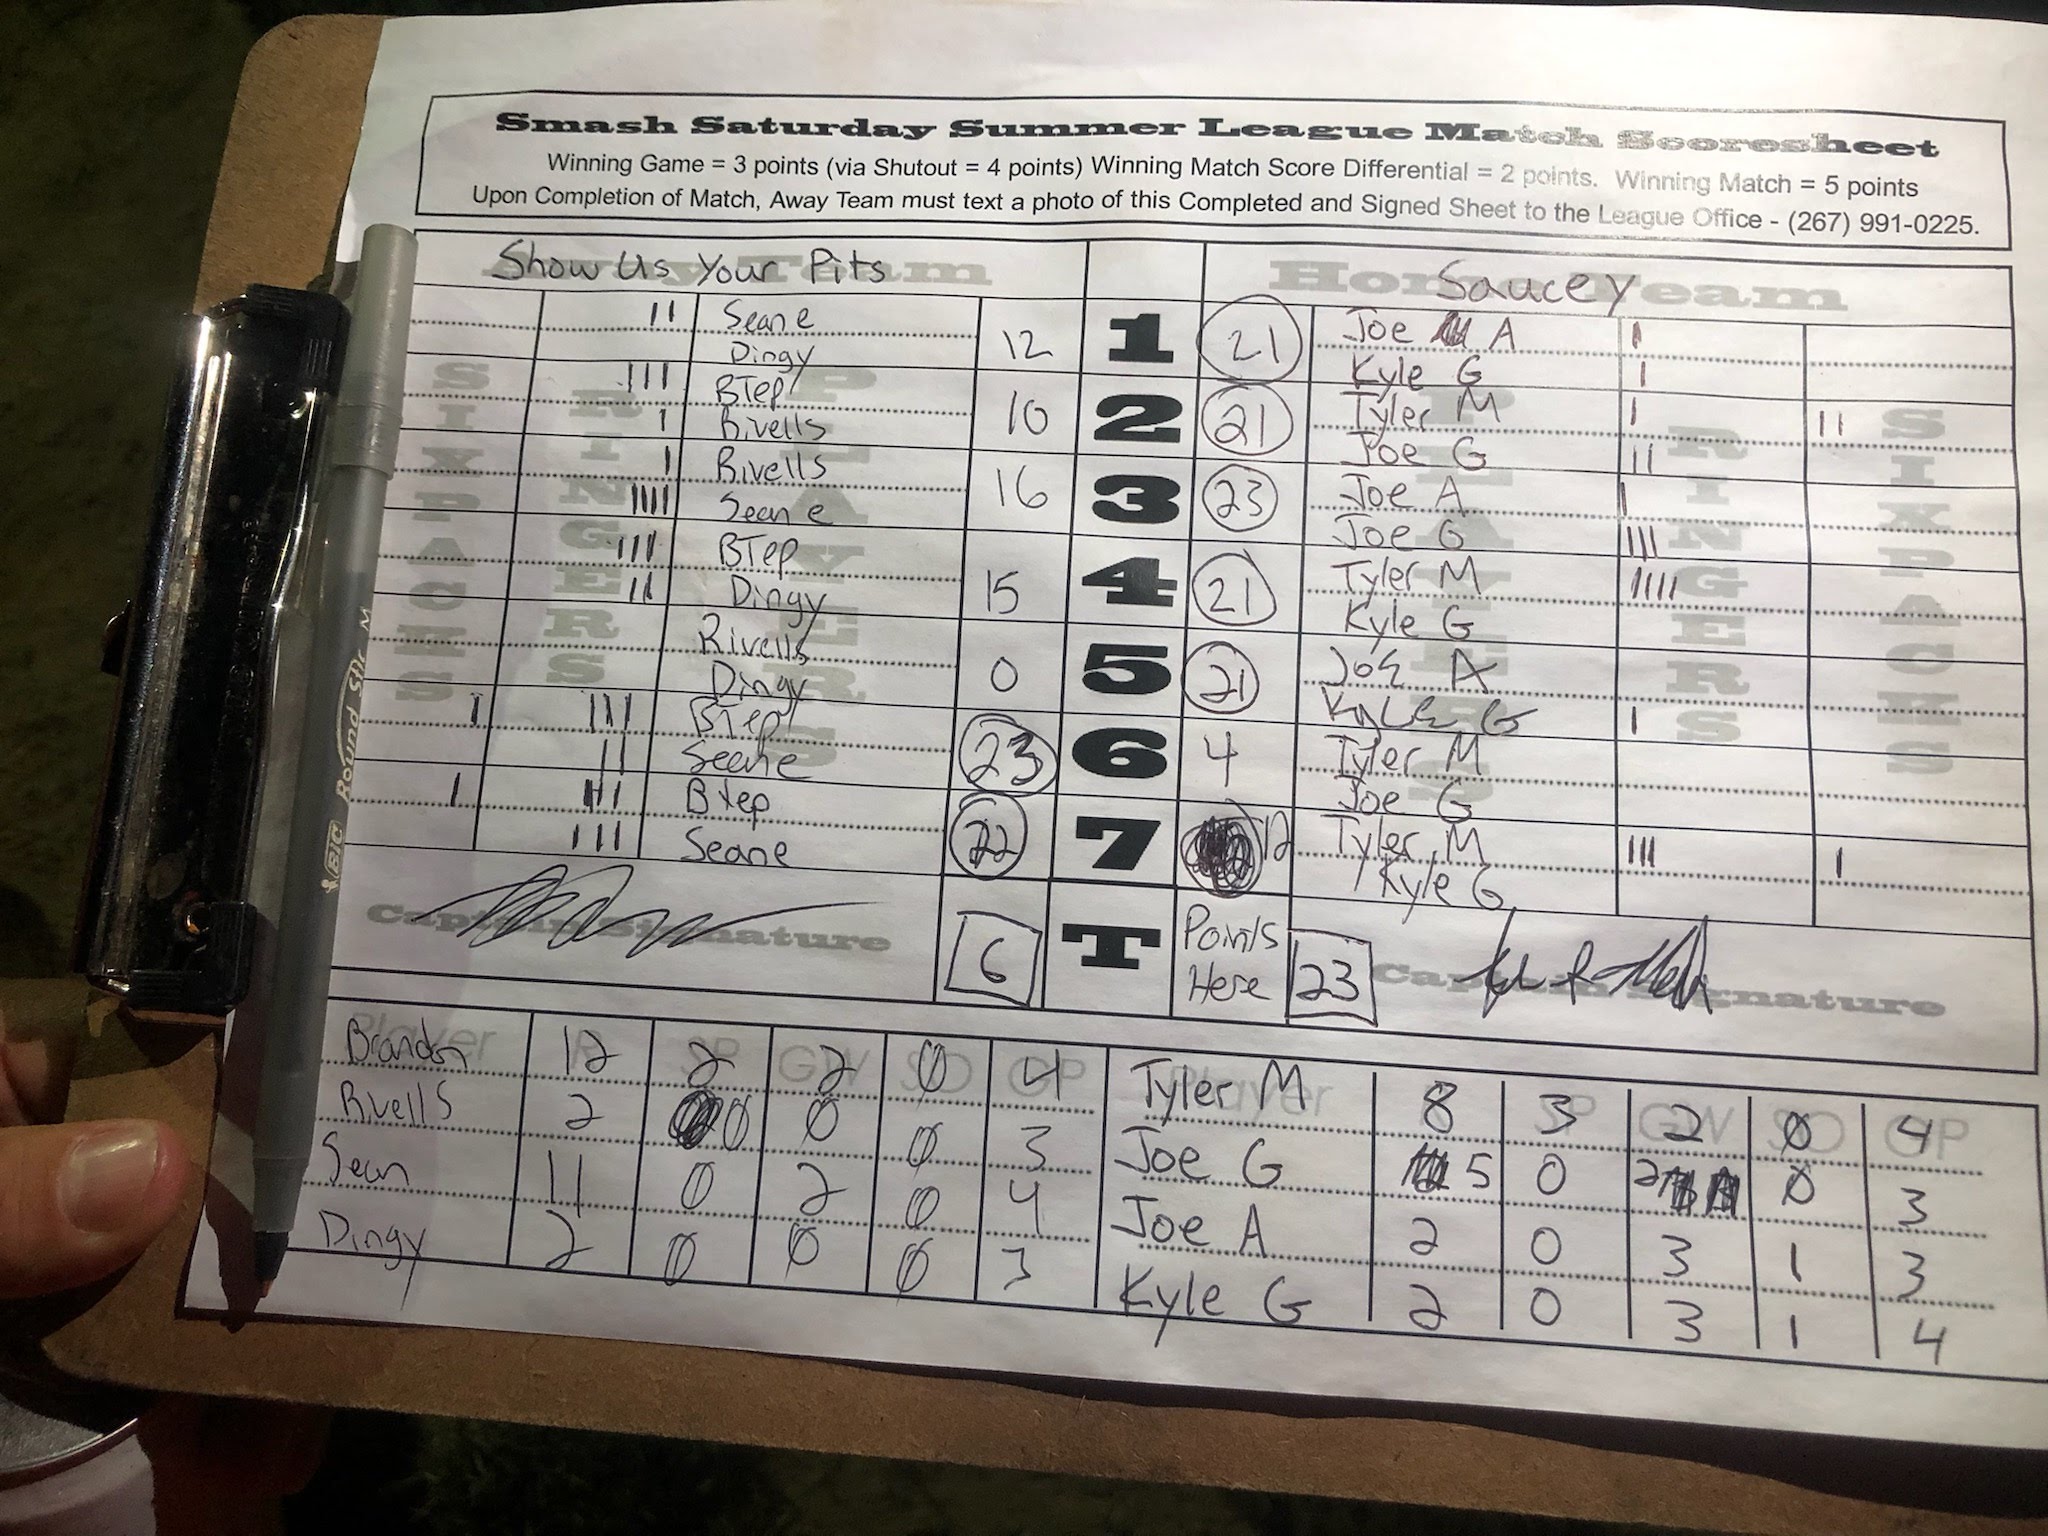 Smash Saturday Summer League Match Scoresheet
Winning Game = 3 points (via Shutout = 4 points) Winning Match Score Differential = 2 points. Winning Match = 5 points
Upon Completion of Match, Away Team must text a photo of this Completed and Signed Sheet to the League Office - (267) 991-0225.
Away Team Show Us Your Pits Home Team Saucey
SIXPACKS RINGERS PLAYERS PLAYERS RINGERS SIXPACKS
|| Seane 12 1 21 Joe A |
Dingy Kyle G |
||| BTep 10 2 21 Tyler M | ||
| Rivells Joe G ||
| Rivells 16 3 23 Joe A |
|||| Seane Joe G |||
||| BTep 15 4 21 Tyler M ||||
|| Dingy Kyle G
Rivells 0 5 21 Joe A
Dingy Kyle G |
| ||| BTep 23 6 4 Tyler M
|| Seane Joe G
| ||| Btep 22 7 12 Tyler M ||| |
||| Seane Kyle G
Captain Signature 6 T Points Here 23 Captain Signature
Player R SP GW SO GP Player SP GW SO GP
Brandon 12 2 2 0 4 Tyler M 8 3 2 0 4
Rivells 2 0 0 0 3 Joe G 5 0 2 0 3
Sean 11 0 2 0 4 Joe A 2 0 3 1 3
Dingy 2 0 0 0 3 Kyle G 2 0 3 1 4
BIC Round Stic M